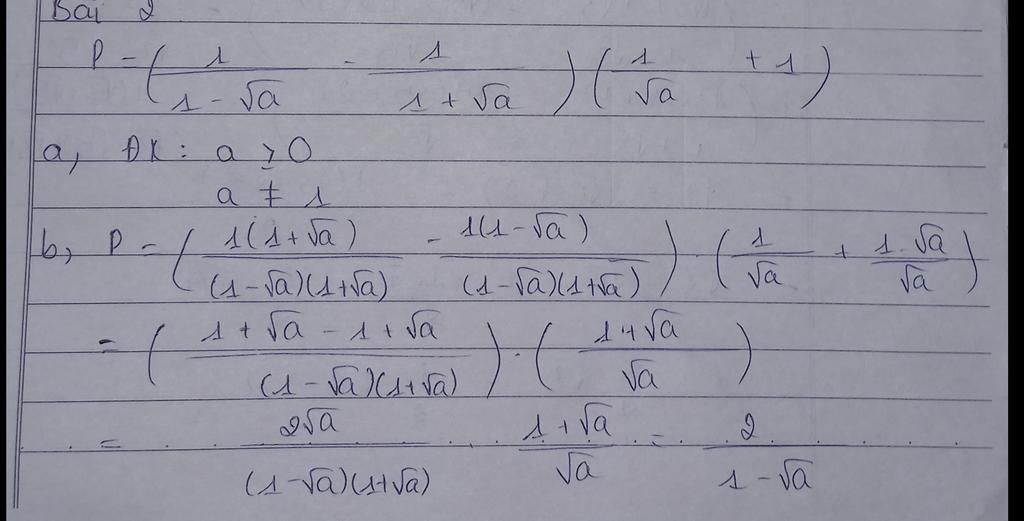 Bài 2
P = ( 1/(1 - √a) - 1/(1 + √a) ) ( 1/√a + 1 )
a, ĐK : a ≥ 0
a ≠ 1
b, P = ( 1(1+√a)/((1-√a)(1+√a)) - 1(1-√a)/((1-√a)(1+√a)) ) · ( 1/√a + 1·√a/√a )
= ( (1 + √a - 1 + √a)/((1-√a)(1+√a)) ) · ( (1+√a)/√a )
= 2√a/((1-√a)(1+√a)) . (1+√a)/√a = 2/(1-√a)